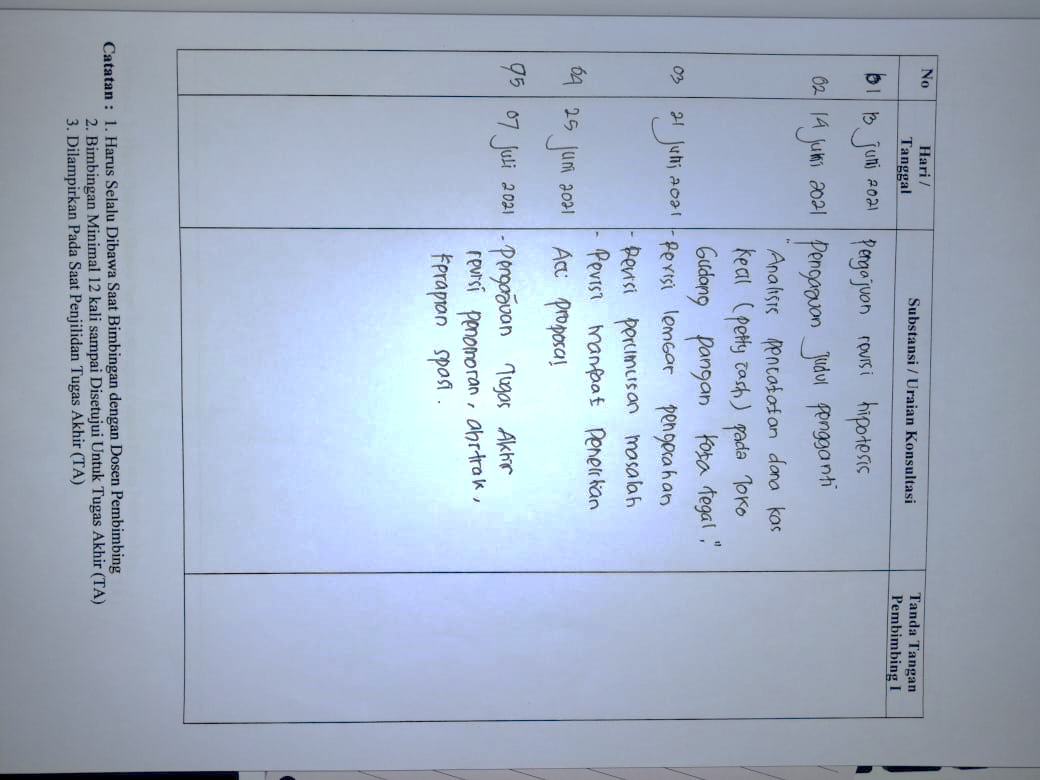 No Hari / Tanggal Substansi / Uraian Konsultasi Tanda Tangan Pembimbing I
01 13 juni 2021 Pengajuan revisi hipotesis
02 14 juni 2021 Pengajuan judul pengganti
"Analisis pencatatan dana kas
kecil (petty cash) pada Toko
Gudang pangan kota Tegal."
03 21 juni 2021 - Revisi lembar pengesahan
- Revisi perumusan masalah
- Revisi manfaat penelitian
04 25 juni 2021 Acc proposal
05 07 juli 2021 - Pengajuan Tugas Akhir
revisi penomoran, abstrak,
kerapian spasi.
Catatan : 1. Harus Selalu Dibawa Saat Bimbingan dengan Dosen Pembimbing
2. Bimbingan Minimal 12 kali sampai Disetujui Untuk Tugas Akhir (TA)
3. Dilampirkan Pada Saat Penjilidan Tugas Akhir (TA)